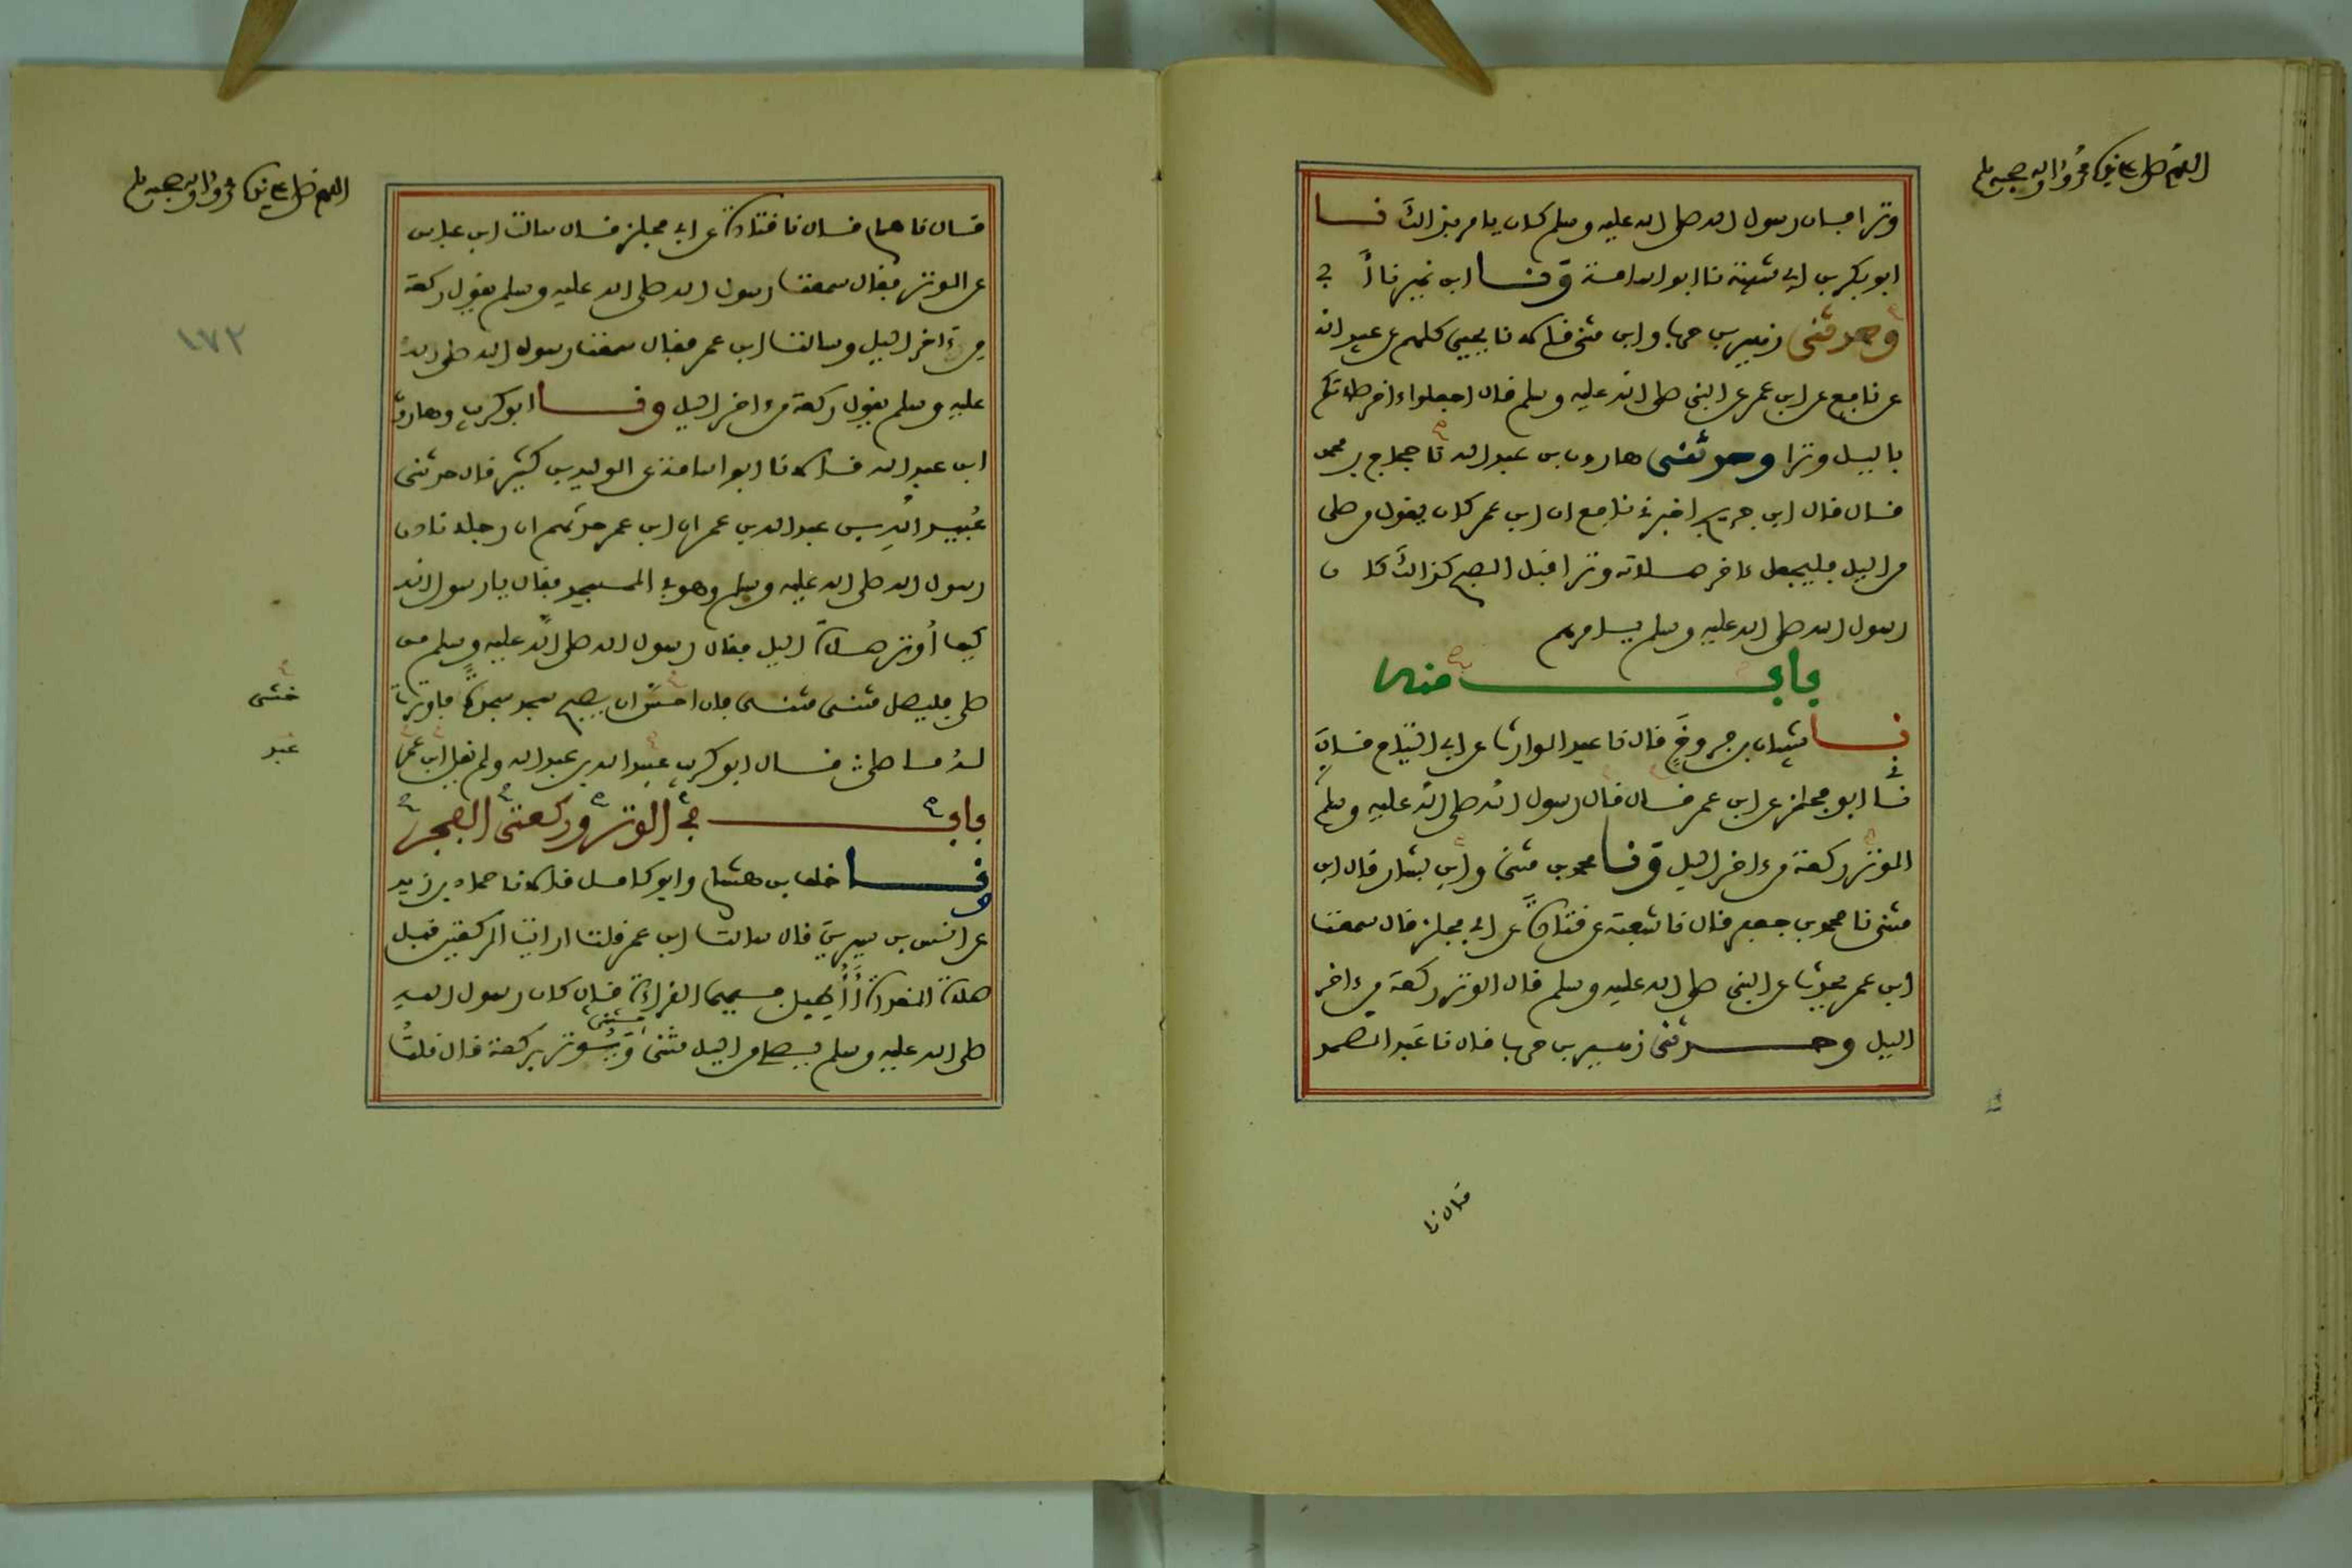 اللهم صل على نبيك محمد وآله وصحبه وسلم
وترا فان رسول الله صلى الله عليه وسلم كان يامر بذالك نا
ابو بكر بن ابي شيبة نا ابو اسامة ونا ابن نمير نا أبي
وحدثني زهير بن حرب وابن مثنى قالا نا يحيى كلهم عن عبيد الله
عن نافع عن ابن عمر عن النبي صلى الله عليه وسلم قال اجعلوا ءاخر صلاتكم
باليل وترا وحدثني هارون بن عبد الله نا حجاج بن محمد
قال قال ابن جريج اخبرني نافع ان ابن عمر كان يقول من صلى
من اليل فليجعل ءاخر صلاته وترا قبل الصبح كذالك كان
رسول الله صلى الله عليه وسلم يامرهم
باب منه
نا شيبان بن فروخ قال نا عبد الوارث عن ابي التياح قال
نا ابو مجلز عن ابن عمر قال قال رسول الله صلى الله عليه وسلم
الوتر ركعة من ءاخر اليل ونا محمد بن مثنى وابن بشار قال ابن
مثنى نا محمد بن جعفر قال نا شعبة عن قتادة عن ابي مجلز قال سمعت
ابن عمر يحدث عن النبي صلى الله عليه وسلم قال الوتر ركعة من ءاخر
اليل وحدثني زهير بن حرب قال نا عبد الصمد
قال نا
اللهم صل على نبيك محمد وآله وصحبه وسلم
قال نا همام قال نا قتادة عن ابي مجلز قال سالت ابن عباس
عن الوتر فقال سمعت رسول الله صلى الله عليه وسلم يقول ركعة
من ءاخر اليل وسالت ابن عمر فقال سمعت رسول الله صلى الله
عليه وسلم يقول ركعة من ءاخر اليل ونا ابو كريب وهارون
ابن عبد الله قالا نا ابو اسامة عن الوليد بن كثير قال حدثني
عبيد الله بن عبد الله بن عمر ان ابن عمر حدثهم ان رجلا نادى
رسول الله صلى الله عليه وسلم وهو في المسجد فقال يا رسول الله
كيف أوتر صلاة اليل فقال رسول الله صلى الله عليه وسلم من
صلى فليصل مثنى مثنى فان احس ان يصبح سجد سجدة فاوترت
له ما صلى قال ابو كريب عبيد الله بن عبد الله ولم يقل ابن عمر
باب في الوتر وركعتي الفجر
ونا خلف بن هشام وابو كامل قالا نا حماد بن زيد
عن انس بن سيرين قال سالت ابن عمر قلت ارايت الركعتين قبل
صلاة الغداة أأطيل فيهما القراءة قال كان رسول الله
صلى الله عليه وسلم يصلي من اليل مثنى مثنى ويوتر بركعة قال قلت
١٧٢
خشي
عبد